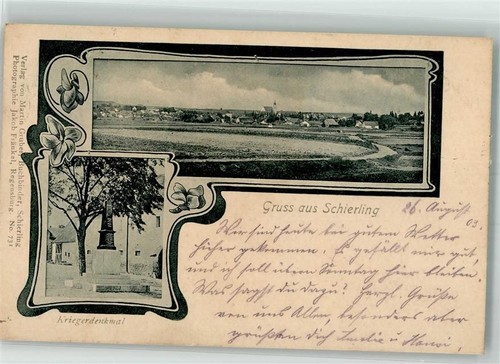 Verlag von Martin Gruber, Buchbinder, Schierling
Photographie Jakob Fränkel, Regensburg. No. 731
Gruss aus Schierling
Kriegerdenkmal
26. August
03.
Wir sind heute bei gutem Wetter
hierher gekommen. Es gefällt mir gut,
und ich soll über Sonntag hier bleiben.
Was sagst du dazu? Herzl. Grüße
von uns Allen, besonders aber
grüßen dich Amalie u.